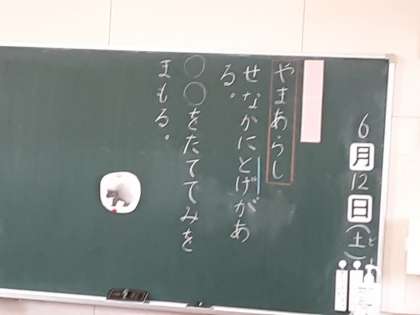 6月12日(土)
ど
やまあらし
せなかにとげがあ
る。
○○をたててみを
まもる。